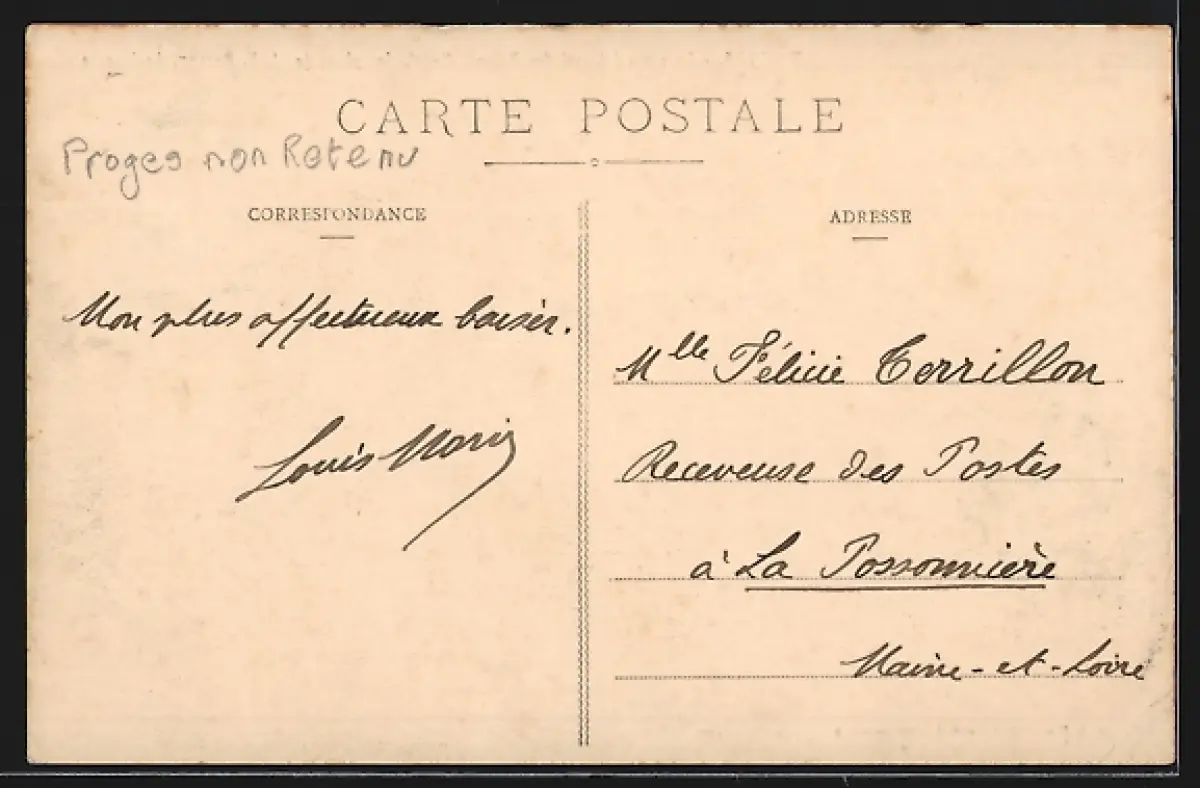 CARTE POSTALE
Proges non Retenu
CORRESPONDANCE
Mon plus affectueux baiser.
Louis Morin
ADRESSE
Mlle Félicie Terrillon
Receveuse des Postes
à La Possonnière
Maine-et-Loire